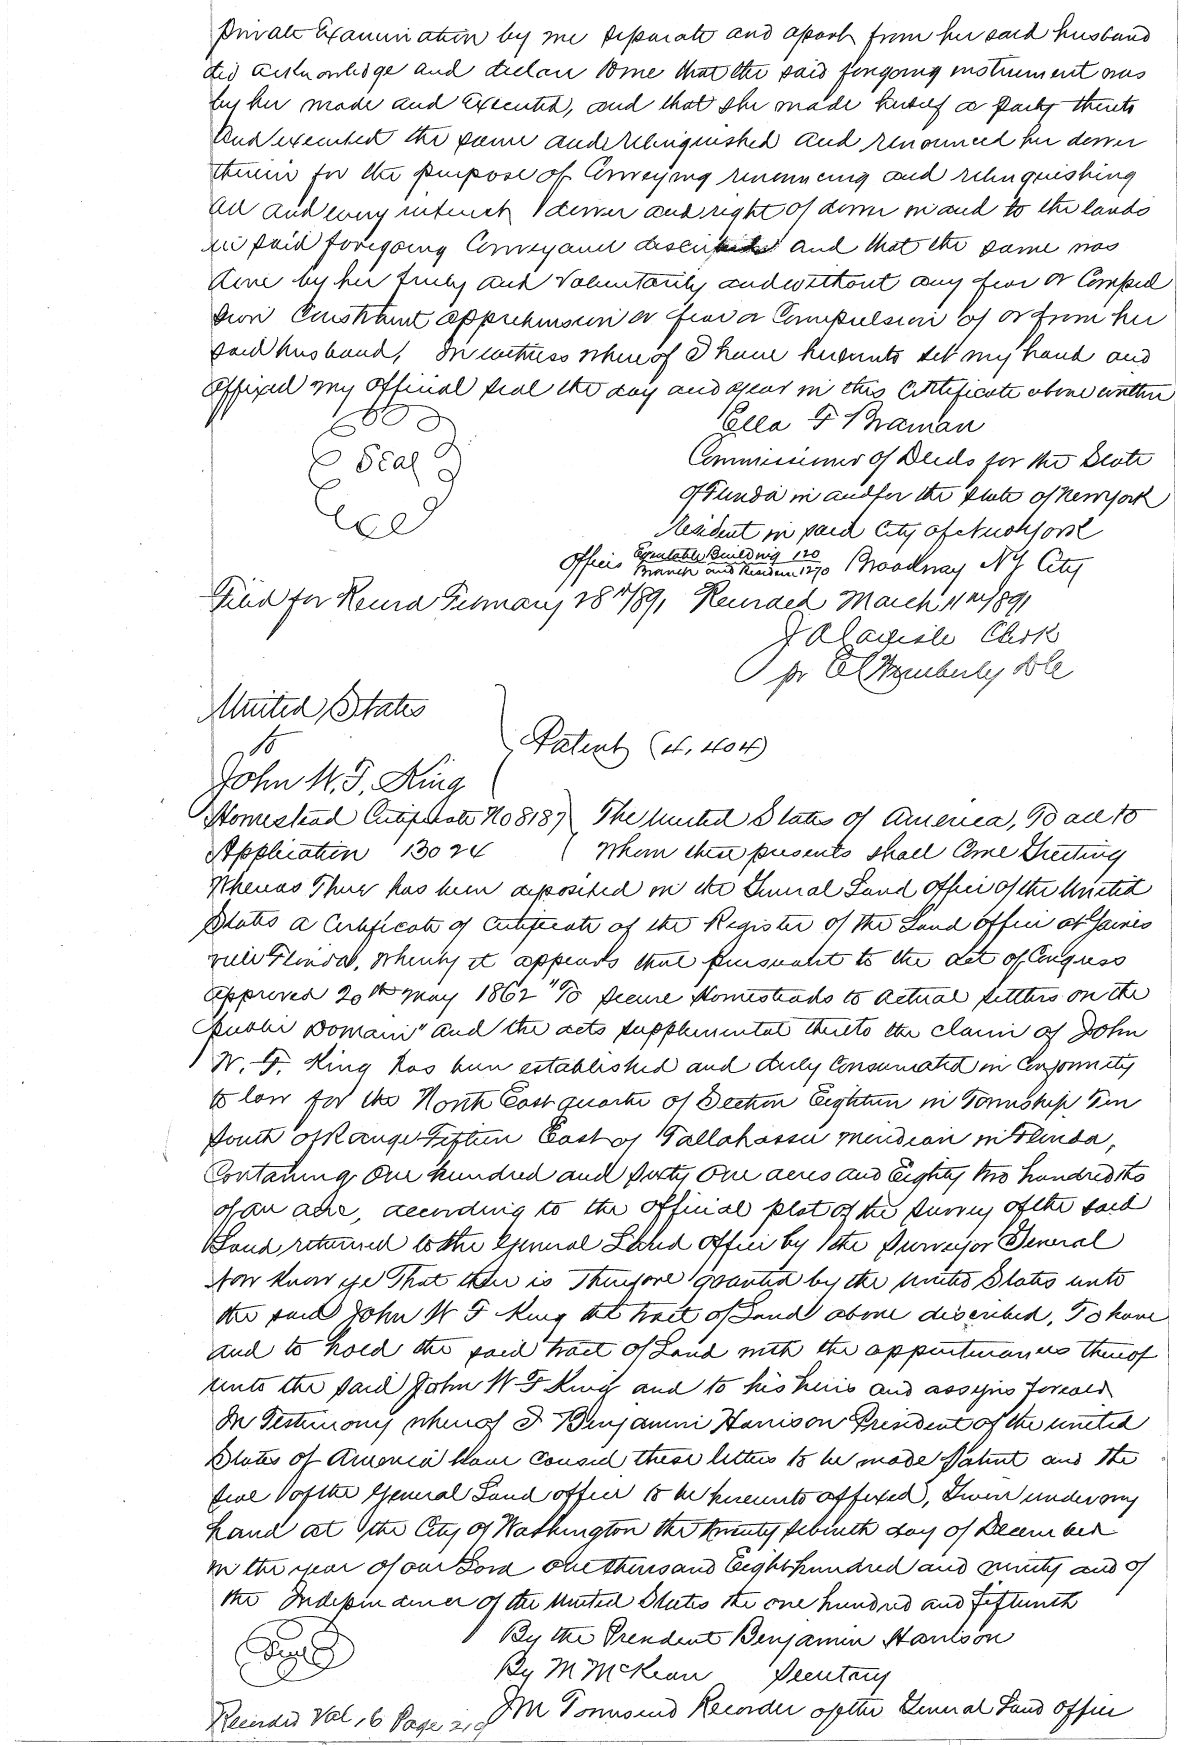 Private Examination by me separate and apart from her said husband
did acknowledge and declare to me that the said foregoing instrument was
by her made and executed, and that she made herself a party thereto
and executed the same and relinquished and renounced her dower
therein for the purpose of Conveying renouncing and relinquishing
all and every interest, dower and right of dower in and to the lands
in said foregoing Conveyance described and that the same was
done by her freely and voluntarily and without any fear or Compul
sion Constraint apprehension or fear or Compulsion of or from her
said husband, In witness where of I have hereunto set my hand and
affixed my official seal the day and year in this Certificate above written
Ella F Braman
Seal
Commissioner of Deeds for the State
of Florida in and for the state of New York
Resident in said City of New York
Offices Equitable Building 120
Branch and Residence 1270 Broadway NY City
Filed for Record February 28th 1891 Recorded March 11th 1891
J A Carlisle Clerk
pr E C Wimberly D C
United States
to
John W. F. King
Patent (4,404)
Homestead Certificate No 8187 The United States of America, To all to
Application 13024 Whom these presents shall Come Greeting
Whereas There has been deposited in the General Land Office of the United
States a Certificate of Certificate of the Register of the Land Office at Gaines
ville Florida, whereby it appears that pursuant to the act of Congress
approved 20th May 1862 "To secure Homesteads to actual settlers on the
public Domain" and the acts supplemental thereto the claim of John
W. F. King has been established and duly consumated in Conformity
to law for the North East quarter of Section Eighteen in Township Ten
South of Range Fifteen East of Tallahassee Meridian in Florida,
Containing One hundred and Sixty One acres and Eighty two hundredths
of an acre, according to the official plat of the Survey of the said
Land returned to the General Land Office by the Surveyor General
Now Know ye That there is Therefore granted by the United States unto
the said John W F King the tract of Land above described, To have
and to hold the said tract of Land with the appurtenances thereof
unto the said John W F King and to his heirs and assigns forever
In Testimony whereof I Benjamin Harrison President of the United
States of America have caused these letters to be made Patent and the
seal of the General Land office to be hereunto affixed, Given under my
hand at the City of Washington the twenty seventh day of December
in the year of our Lord one thousand Eight hundred and ninety and of
the Independence of the United States the one hundred and fifteenth
By the President Benjamin Harrison
Seal
By M McKean Secretary
Recorded Vol, 6 Page
J M Townsend Recorder of the General Land Office